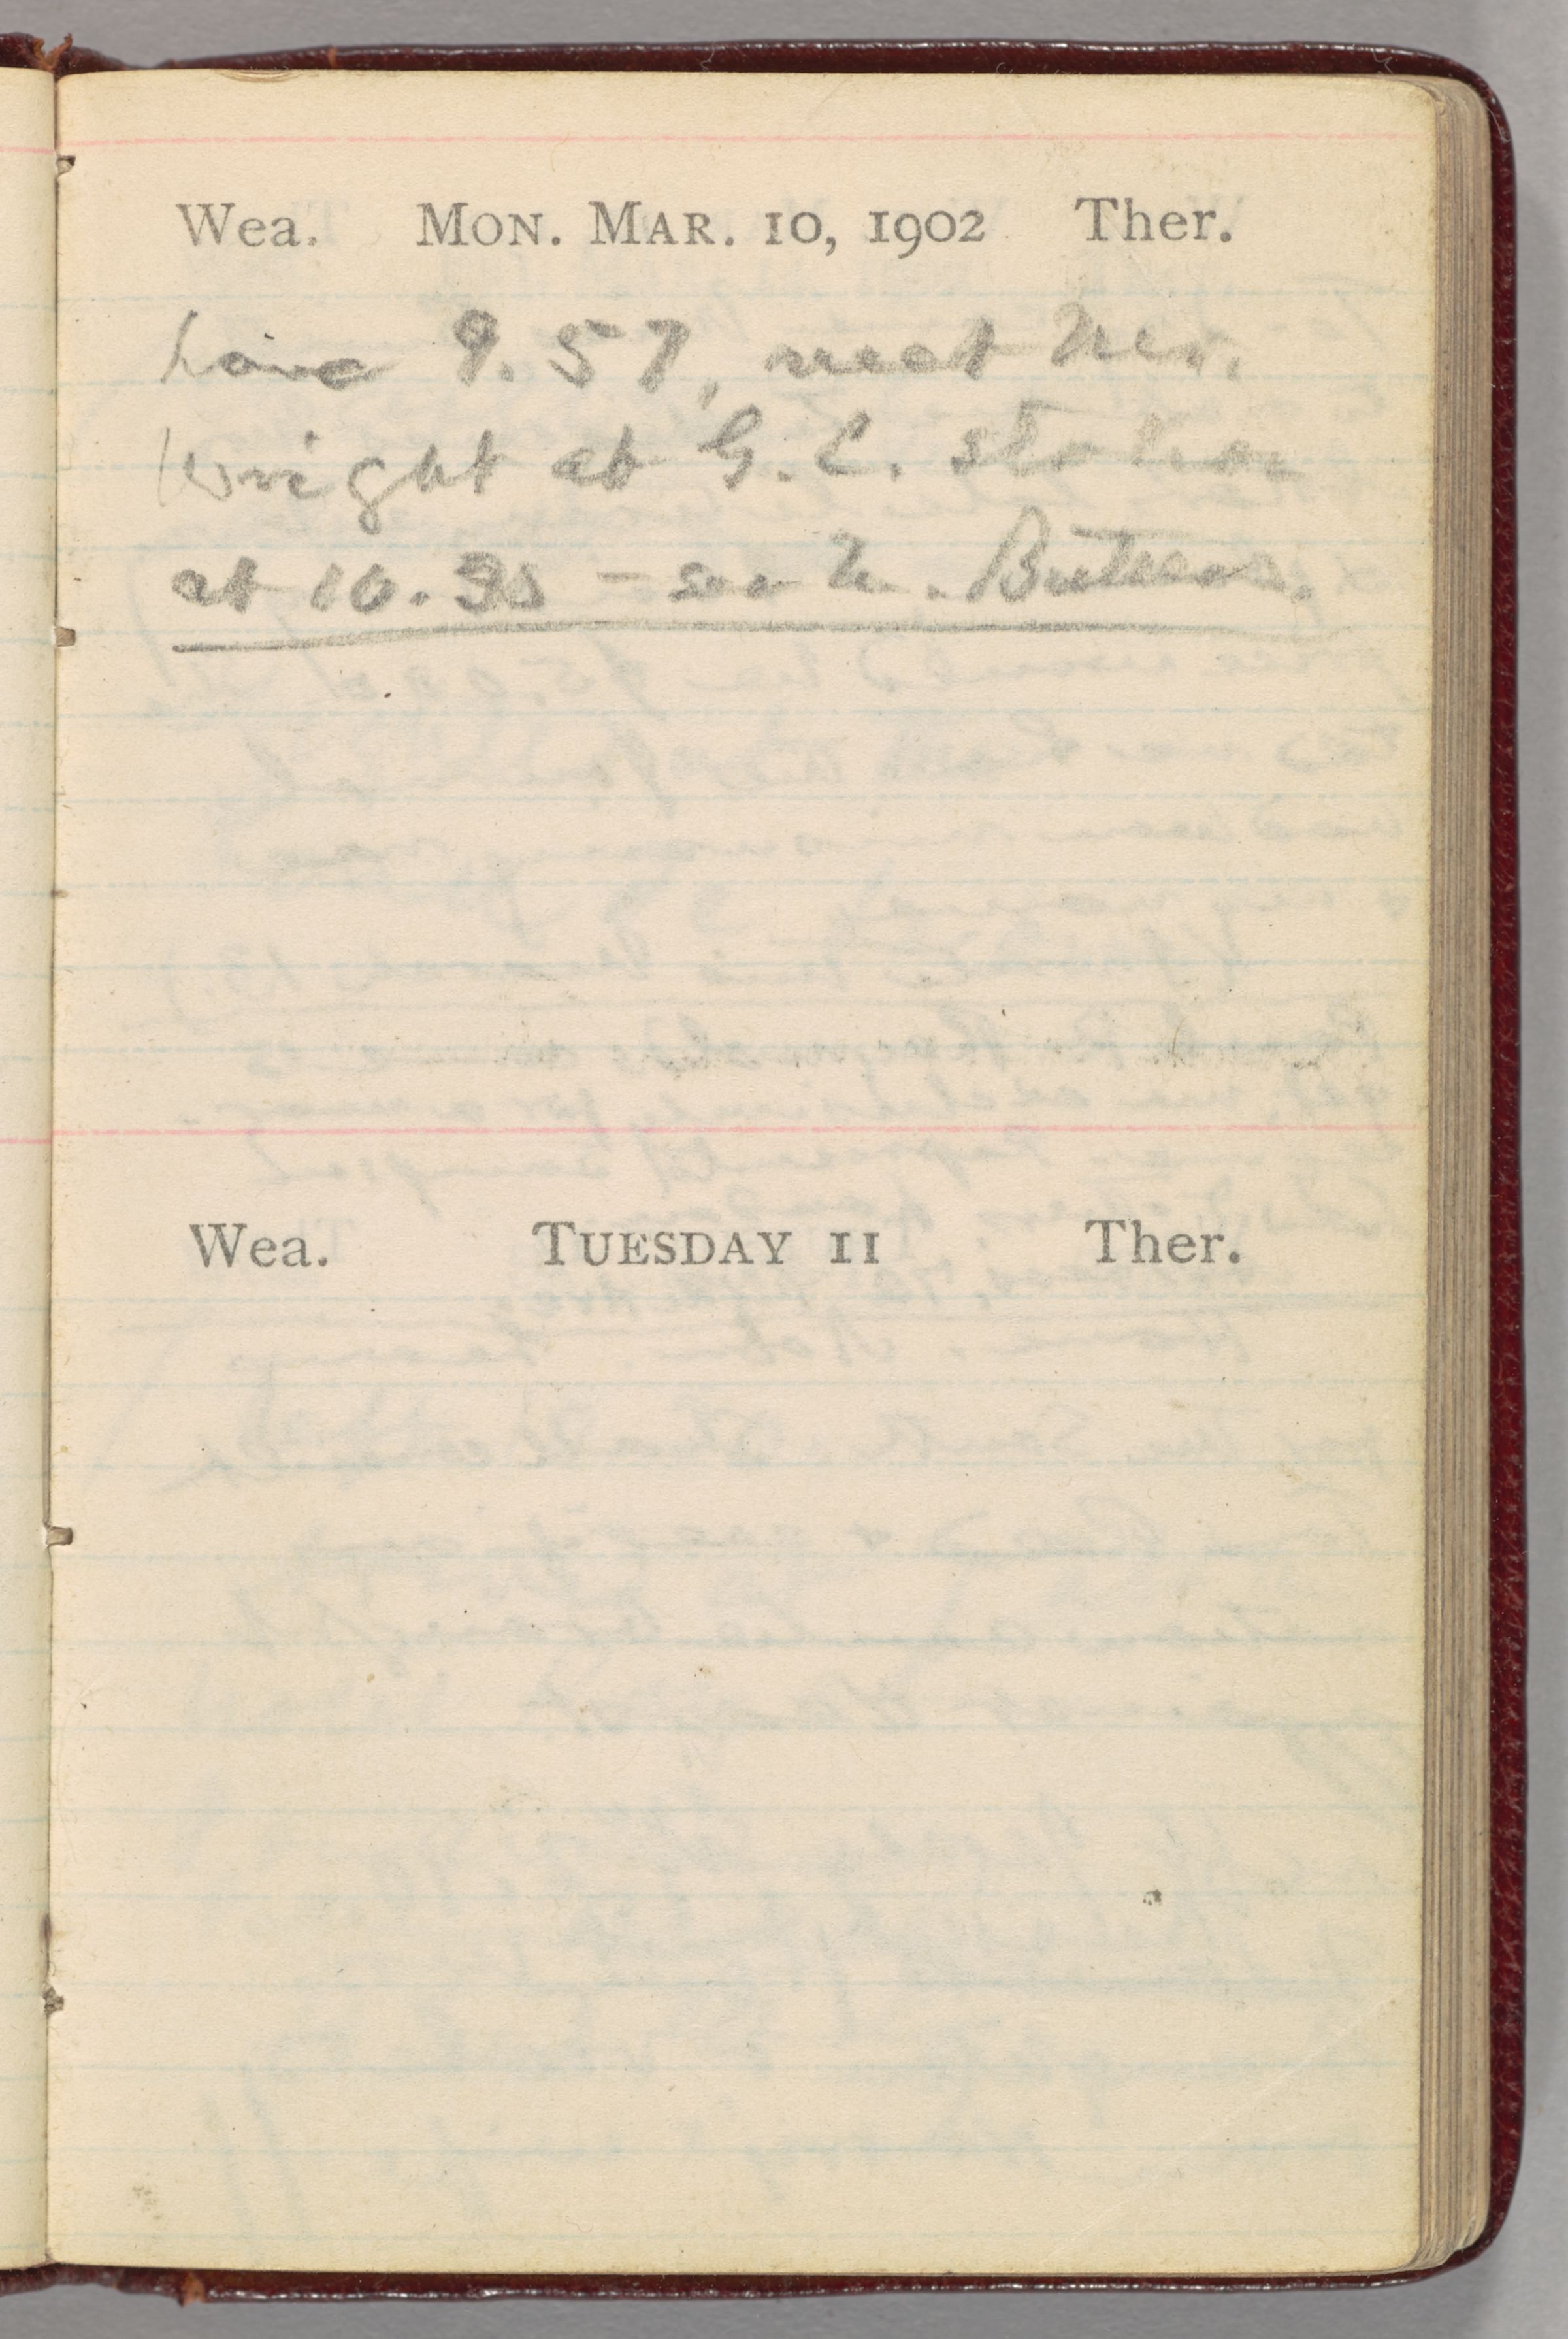 Wea. MON. MAR. 10, 1902 Ther.
9.57, meet
Wright at G. C. station
at 10.35 - see
Wea. TUESDAY 11 Ther.